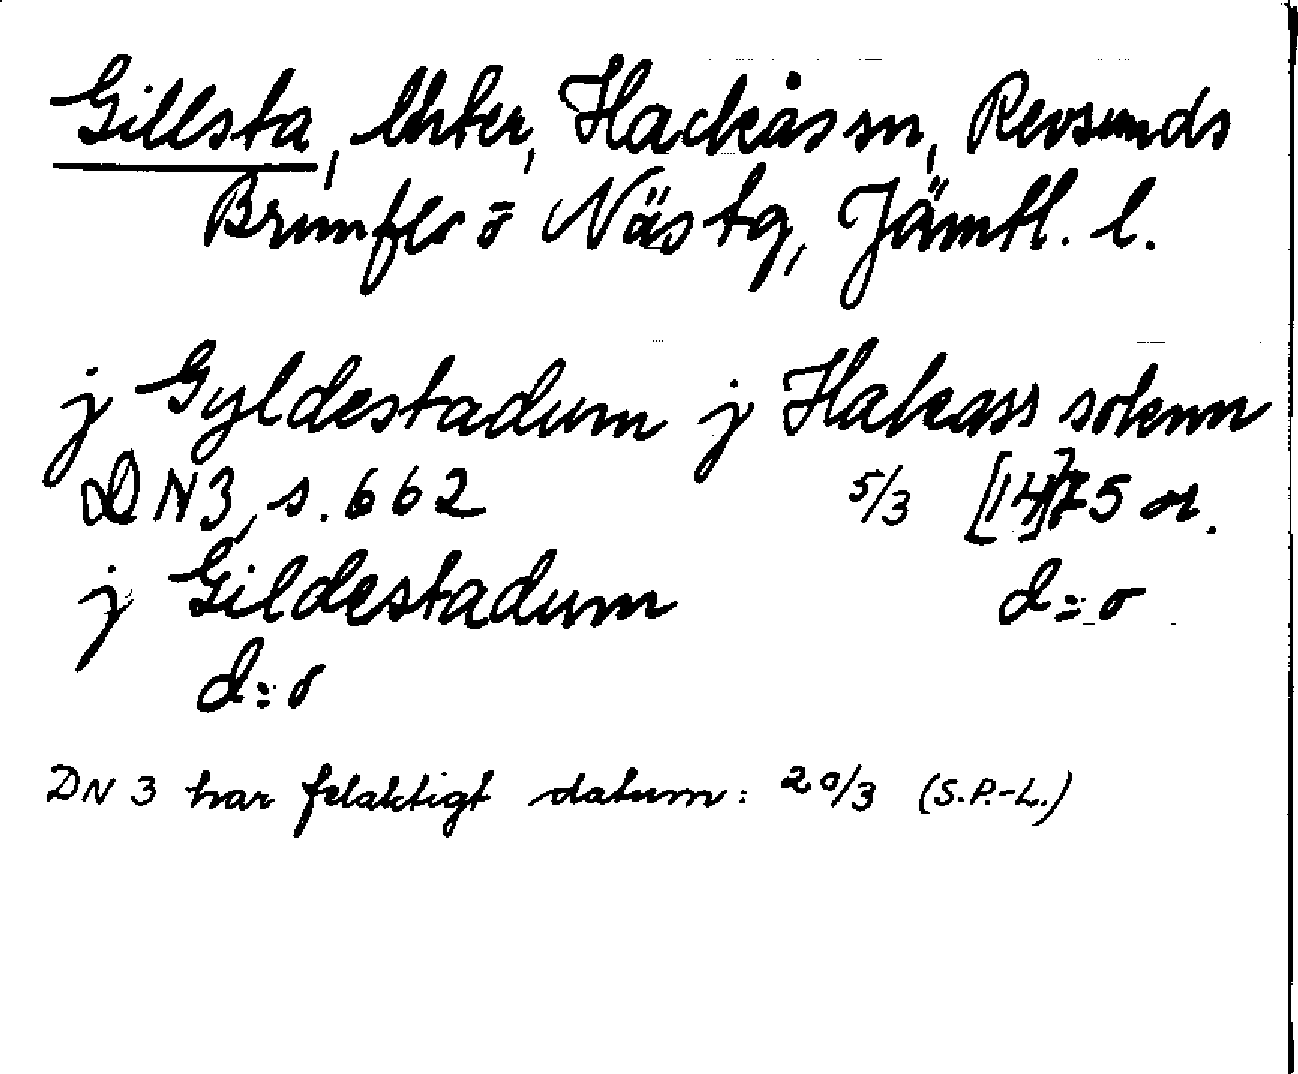 Gillsta, Utter, Hackås sn, Revsunds
Brunflo o Näs tg, Jämtl. l.
j Gyldestadum j Hakass soknn
DN 3, s. 662 5/3 [14]75 or.
j Gildestadum d:o
d:o
DN 3 har felaktigt datum: 20/3 (S.P.-L.)